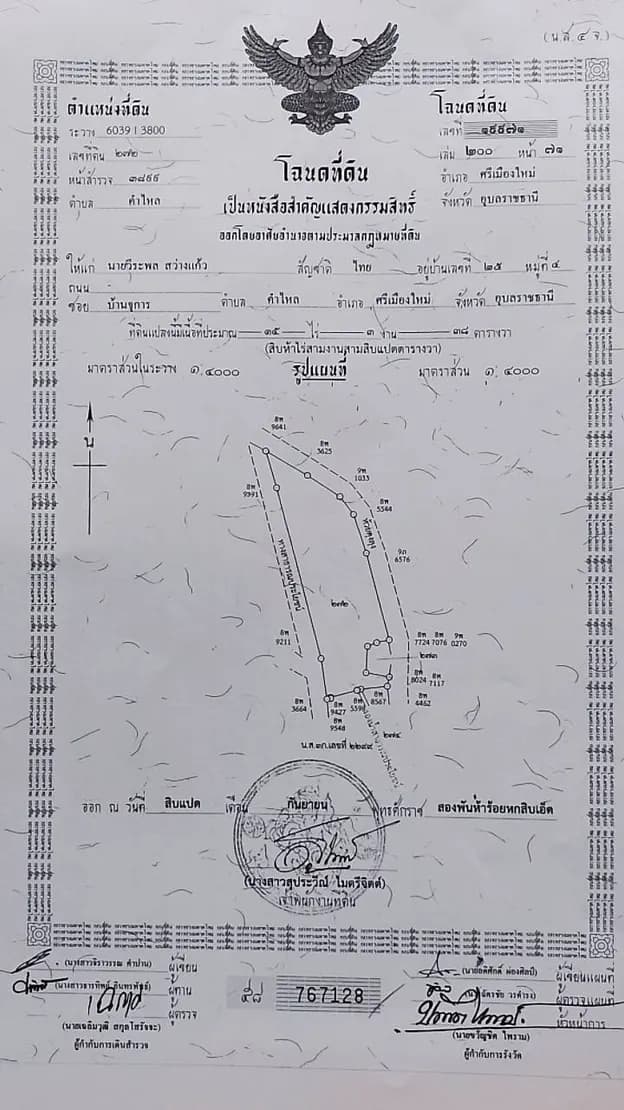 (น.ส. ๔ จ.)
ตำแหน่งที่ดิน
ระวาง 6039 I 3800
เลขที่ดิน ๒๗๒
หน้าสำรวจ ๓๘๙๙
ตำบล คำไหล
โฉนดที่ดิน
เลขที่ ๑๙๙๗๑
เล่ม ๒๐๐ หน้า ๗๑
อำเภอ ศรีเมืองใหม่
จังหวัด อุบลราชธานี
โฉนดที่ดิน
เป็นหนังสือสำคัญแสดงกรรมสิทธิ์
ออกโดยอาศัยอำนาจตามประมวลกฎหมายที่ดิน
ให้แก่ นายวีระพล สว่างแก้ว สัญชาติ ไทย อยู่บ้านเลขที่ ๒๕ หมู่ที่ ๔
ถนน -
ซอย บ้านจุการ ตำบล คำไหล อำเภอ ศรีเมืองใหม่ จังหวัด อุบลราชธานี
ที่ดินแปลงนี้มีเนื้อที่ประมาณ ๑๕ ไร่ ๓ งาน ๓๘ ตารางวา
(สิบห้าไร่สามงานสามสิบแปดตารางวา)
มาตราส่วนในระวาง ๑ : ๔๐๐๐ รูปแผนที่ มาตราส่วน ๑ : ๔๐๐๐
น
8พ 9641
8พ 3625
9พ 1033
8พ 5544
8พ 9391
9ถ 6576
ทางสาธารณประโยชน์
๒๗๒
8พ 9211
8พ 7724
8พ 7076
9พ 0270
๒๗๓
8พ 8024
8พ 7117
8พ 4462
8พ 3664
8พ 9427
8พ 5598
8พ 8567
8พ 9548
๒๗๔
น.ส. ๓ก.เลขที่ ๒๒๙๙
ออก ณ วันที่ สิบแปด เดือน กันยายน พุทธศักราช สองพันห้าร้อยหกสิบเอ็ด
(นางสาวสุประวีณ์ ไมตรีจิตต์)
เจ้าพนักงานที่ดิน
(นางสาวจิราวรรณ คำปาน) ผู้เขียน
(นางสาวจารุทิพย์ อินทรพัฐร์) ผู้ทาน
ผู้ตรวจ
(นายเฉลิมวุฒิ สกุลโสรัจจะ)
ผู้กำกับการเดินสำรวจ
๕๘ 767128
(นายอดิศักดิ์ ผ่องศิลป์) ผู้เขียนแผนที่
ผู้ตรวจแผนที่
หัวหน้าการ
(นายขวัญชิต โพราม)
ผู้กำกับการรังวัด